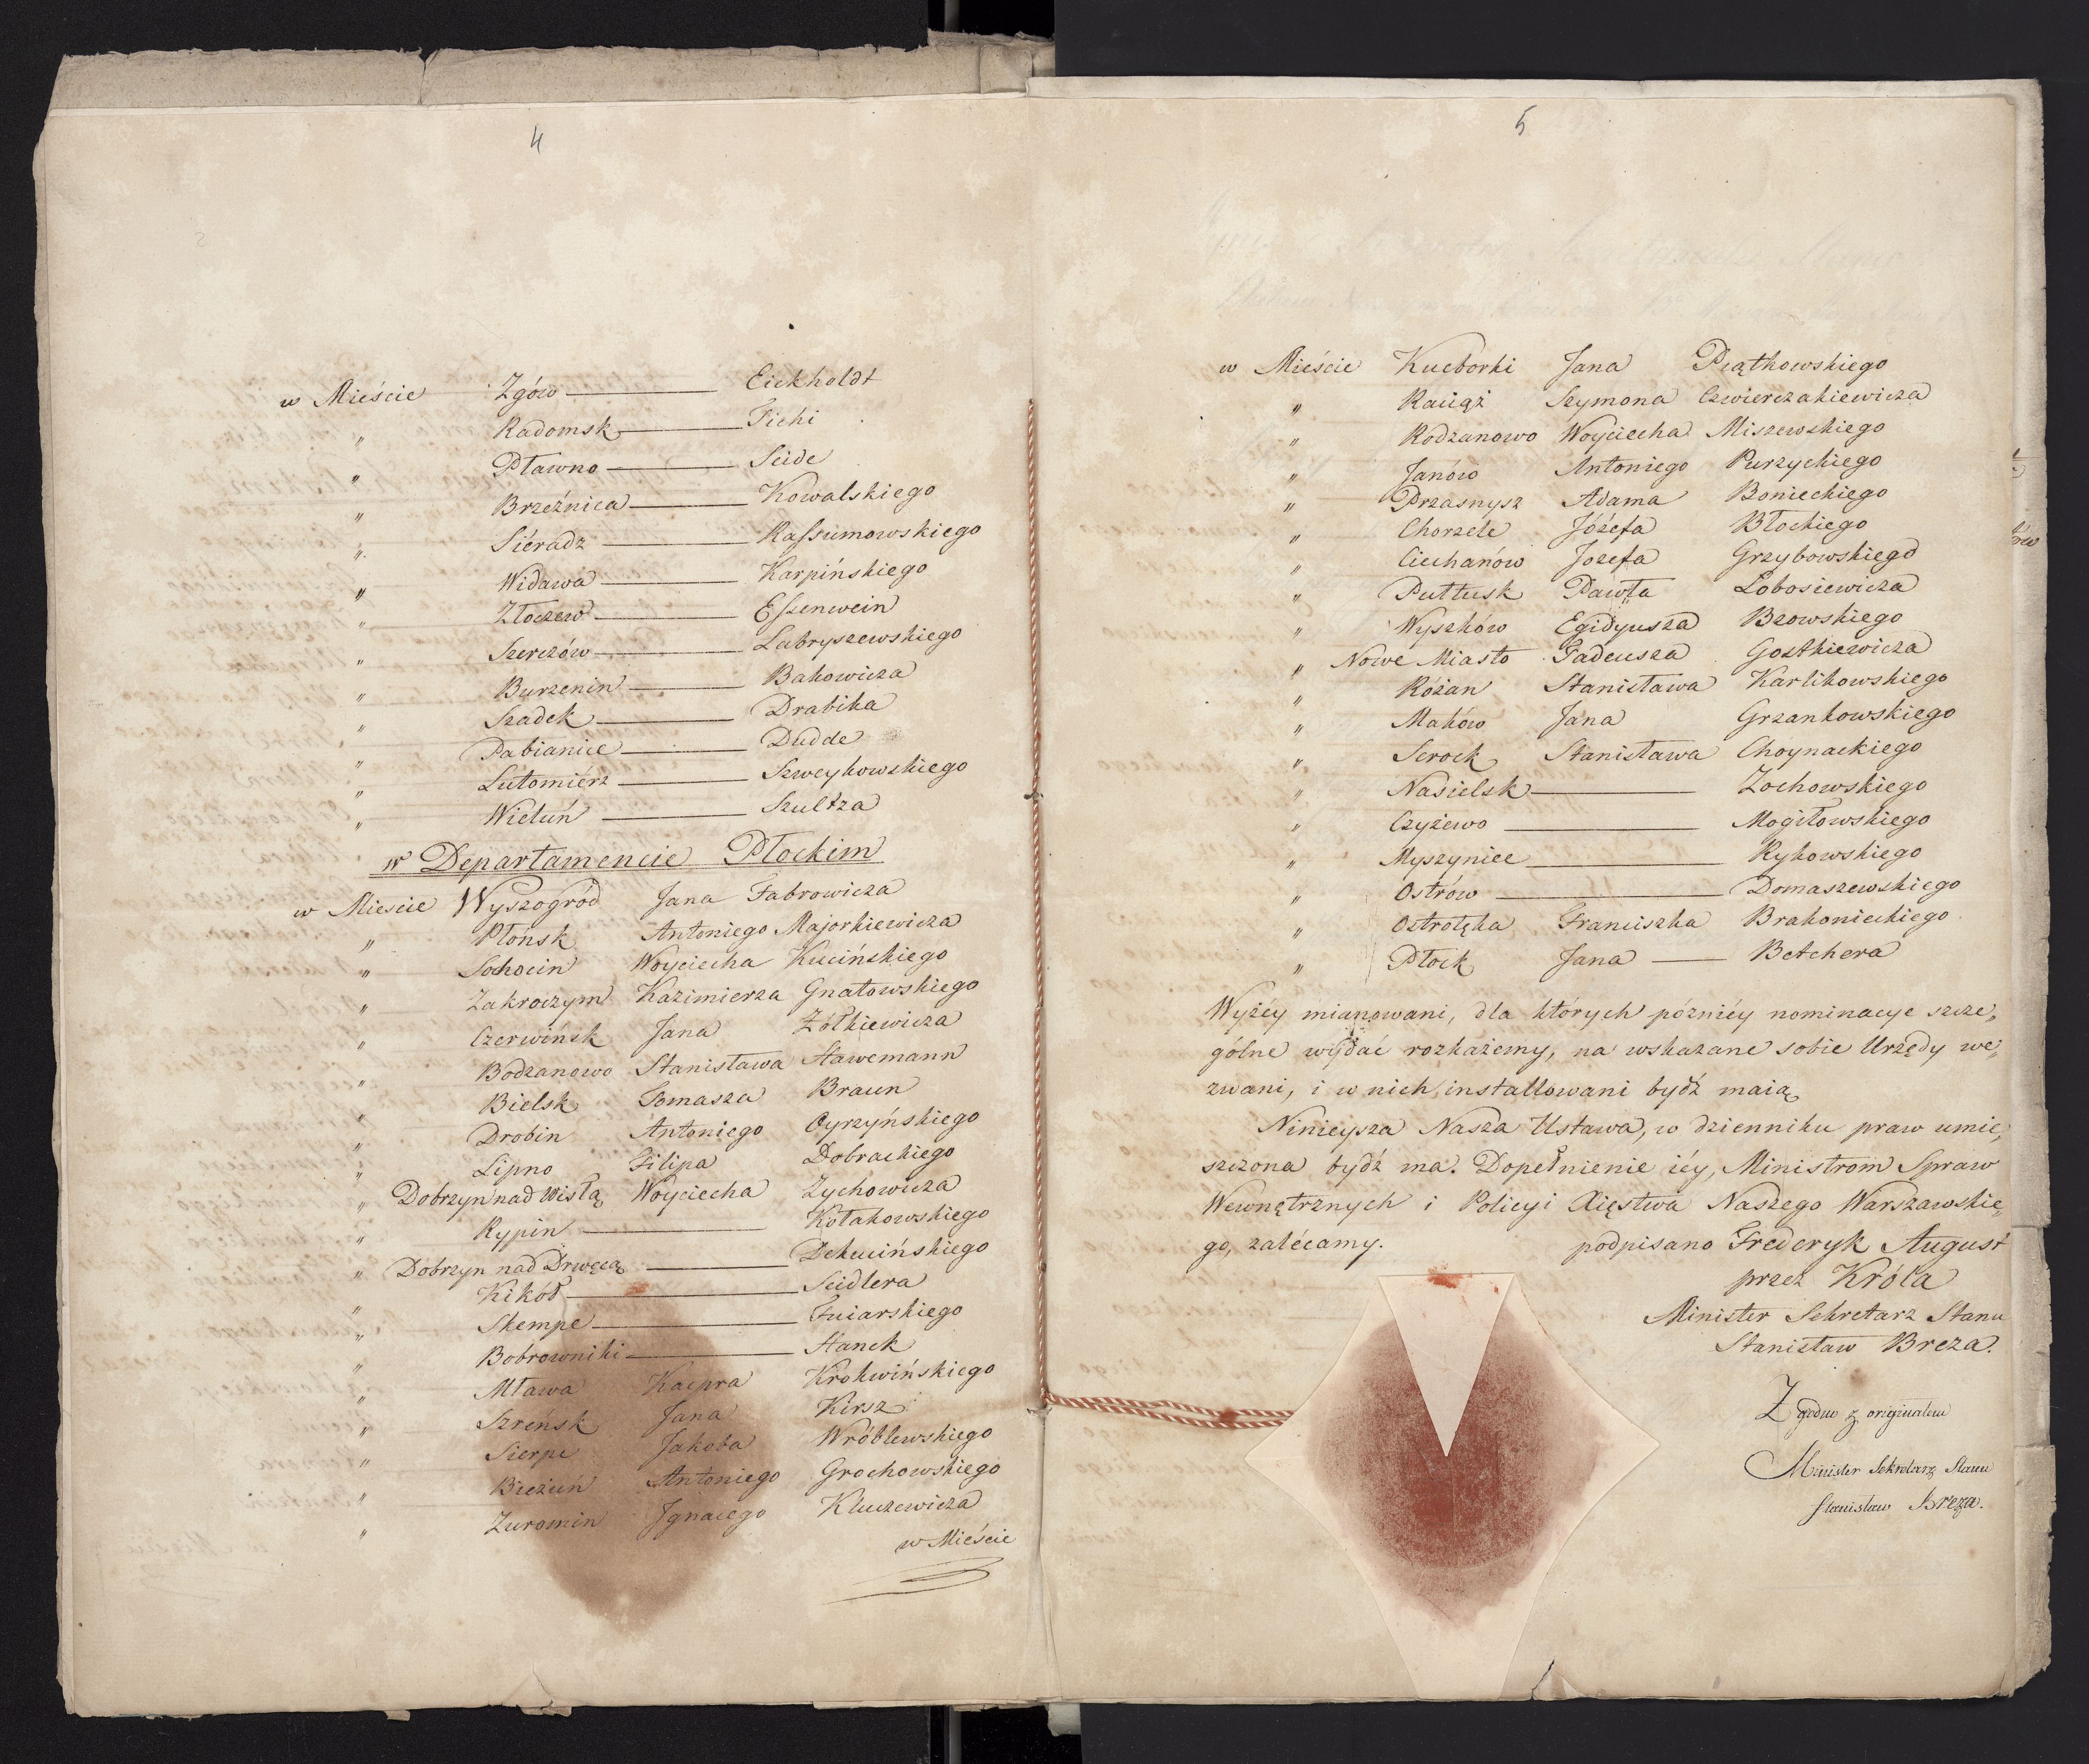 4
w Mieście Zgów Eickholdt
" Radomsk Fichi
" Pławno Seide
" Brzeźnica Kowalskiego
" Siéradz Rassumowskiego
" Widawa Karpińskiego
" Złoczew Essenwein
" Szerczów Labryszewskiego
" Burzenin Bakowicza
" Szadek Drabika
" Pabianice Dudde
" Lutomiérz Szweykowskiego
" Wieluń Szultza
w Departamencie Płockim
w Miescie Wyszogród Jana Fabrowicza
" Płońsk Antoniego Majorkiewicza
" Sochocin Woyciecha Kucińskiego
" Zakroczym Kazimierza Gnatowskiego
" Czerwińsk Jana Żółkiewicza
" Bodzanowo Stanisława Stawemann
" Bielsk Tomasza Braun
" Drobin Antoniego Cyrzyńskiego
" Lipno Filipa Dobrackiego
" Dobrzyn nad Wisłą Woyciecha Zychowicza
" Rypin Kołakowskiego
" Dobrzyn nad Drwęcą Dekucińskiego
" Kikół Seidlera
" Skempe Fuiarskiego
" Bobrowniki Stanek
" Mława Kacpra Krokwińskiego
" Szreńsk Jana Kirsz
" Sierpc Jakoba Wróblewskiego
" Bieżuń Antoniego Grochowskiego
" Zuromin Jgnacego Kluczewicza
w Mieście
5
w Mieście Kuczborki Jana Piątkowskiego
" Raciąż Szymona Czwierczakiewicza
" Rodzanowo Woyciecha Miszewskiego
" Janów Antoniego Purzyckiego
" Przasnysz Adama Bonieckiego
" Chorzele Józefa Błockiego
" Ciechanów Jozefa Grzybowskiego
" Pułtusk Pawła Lobosiewicza
" Wyszków Egidyusza Bzowskiego
" Nowe Miasto Tadeusza Gostkiewicza
" Różan Stanisława Karlikowskiego
" Maków Jana Grzankowskiego
" Serock Stanisława Choynackiego
" Nasielsk Zochowskiego
" Czyżewo Mogiłowskiego
" Myszyniec Rykowskiego
" Ostrów Domaszewskiego
" Ostrołęka Franciszka Brakonieckiego
" Płock Jana Betchera
Wyżéy mianowani, dla których pózniéy nominacye szcze„
gólne wydać rozkażemy, na wskazane sobie Urzędy we„
zwani, i w nich installowani bydź maią
Ninieysza Nasza Ustawa, w dzienniku praw umie„
szczona bydź ma. Dopełnienie iéy, Ministrom Spraw
Wewnętrznych i Policyi Xięstwa Naszego Warszawskie„
go, zalécamy. podpisano Frederyk August
przez Króla
Minister Sekretarz Stanu
Stanisław Breza.
Zgodno z originałem
Minister Sekretarz Stanu
Stanisław Breza.